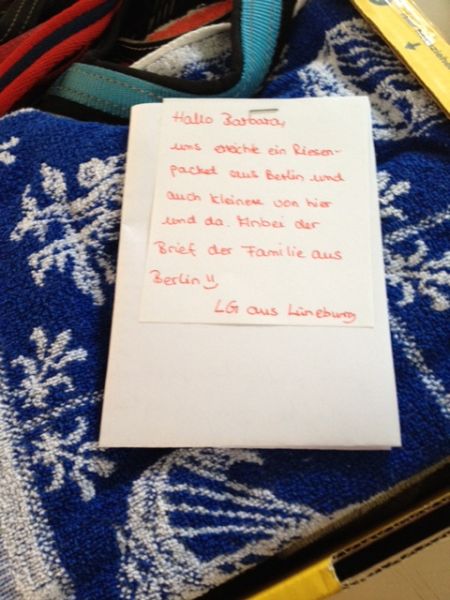 Hallo Barbara,
uns erreichte ein Riesen-
packet aus Berlin und
auch kleinere von hier
und da. Anbei der
Brief der Familie aus
Berlin
LG aus Lüneburg